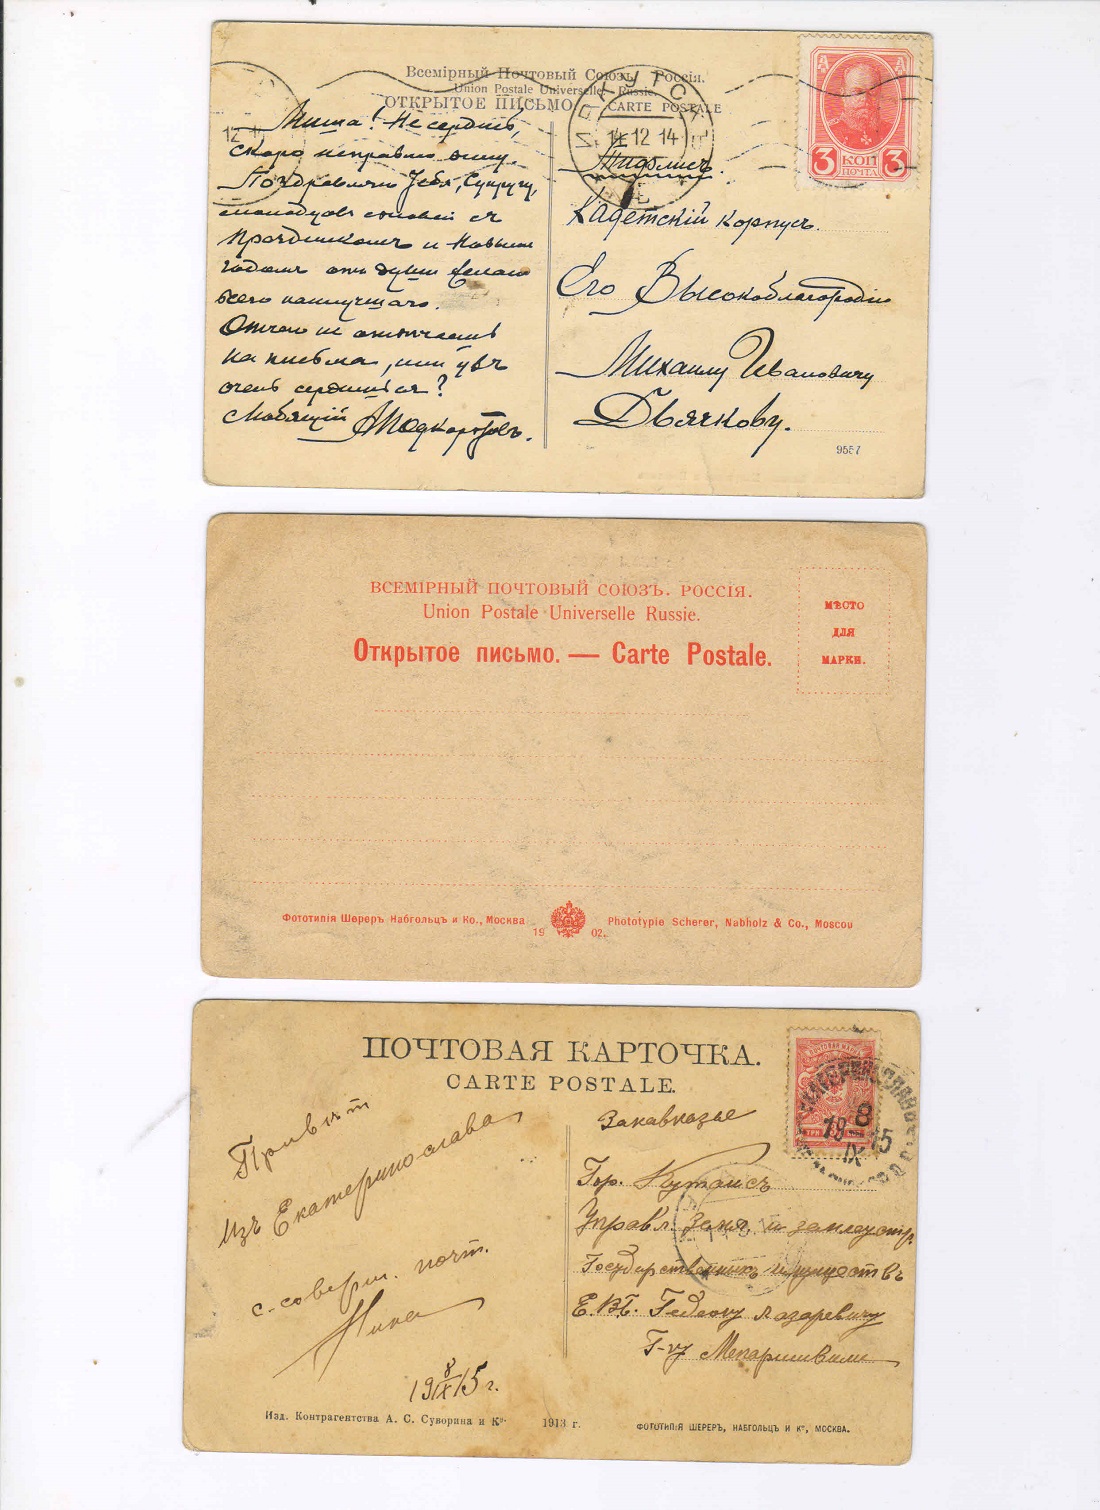 Всемірный Почтовый Союзъ. Россія.
Union Postale Universelle. Russie.
ОТКРЫТОЕ ПИСЬМО — CARTE POSTALE
ИРКУТСКЪ
14 12 14
12
3 КОП 3
ПОЧТА
Миша! Не сердись,
скоро исправлю вину.
Поздравляю Тебя, Супругу,
сыновей съ
праздникомъ и Новымъ
годомъ отъ души желаю
всего наилучшаго.
Отчего не отвѣчаешь
на письма, или ужъ
очень сердишься?
Любящій
Тифлисъ.
Кадетскій корпусъ.
Его Высокоблагородію
Михаилу Ивановичу
Дьячкову.
9557
ВСЕМІРНЫЙ ПОЧТОВЫЙ СОЮЗЪ. РОССІЯ.
Union Postale Universelle Russie.
Открытое письмо. — Carte Postale.
МѢСТО
ДЛЯ
МАРКИ.
Фототипія Шереръ Набгольцъ и Ко., Москва
1902.
Phototypie Scherer, Nabholz & Co., Moscou
ПОЧТОВАЯ КАРТОЧКА.
CARTE POSTALE.
ЕКАТЕРИНОСЛАВЪ
8
19 IX 15
Привѣт
изъ Екатеринослава
с соверш. почт.
Нина
19 8/IX 15 г.
Закавказье
Гор. Кутаисъ
Управл. Земл. и землеустр.
Государственныхъ имуществъ
Е.В.Б. Гедеону Лазаревичу
Г-ну Мепаришвили
Изд. Контрагентства А. С. Суворина и Ко. 1913 г.
ФОТОТИПІЯ ШЕРЕРЪ, НАБГОЛЬЦЪ И Ко, МОСКВА.